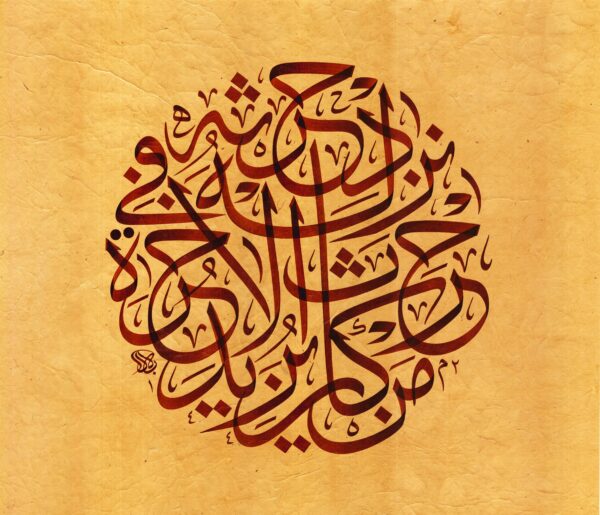 من كان يريد حرث الآخرة نزد له في حرثه